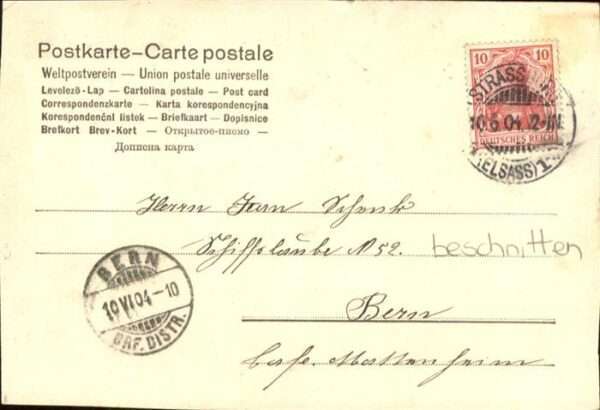 Postkarte—Carte postale
Weltpostverein — Union postale universelle
Levelező-Lap — Cartolina postale — Post card
Correspondenzkarte — Karta korespondencyjna
Korespondenční lístek — Briefkaart — Dopisnice
Brefkort Brev-Kort — Открытое-письмо —
Дописна карта
10 10
STRASS
10.6 04 2-3N
DEUTSCHES REICH
(ELSASS) 1
Herrn Jean Schenk
Schifflaube N 52.
beschnitten
Bern
Cafe. Mattenheim
BERN
10 VI 04 – 10
BRF. DISTR.